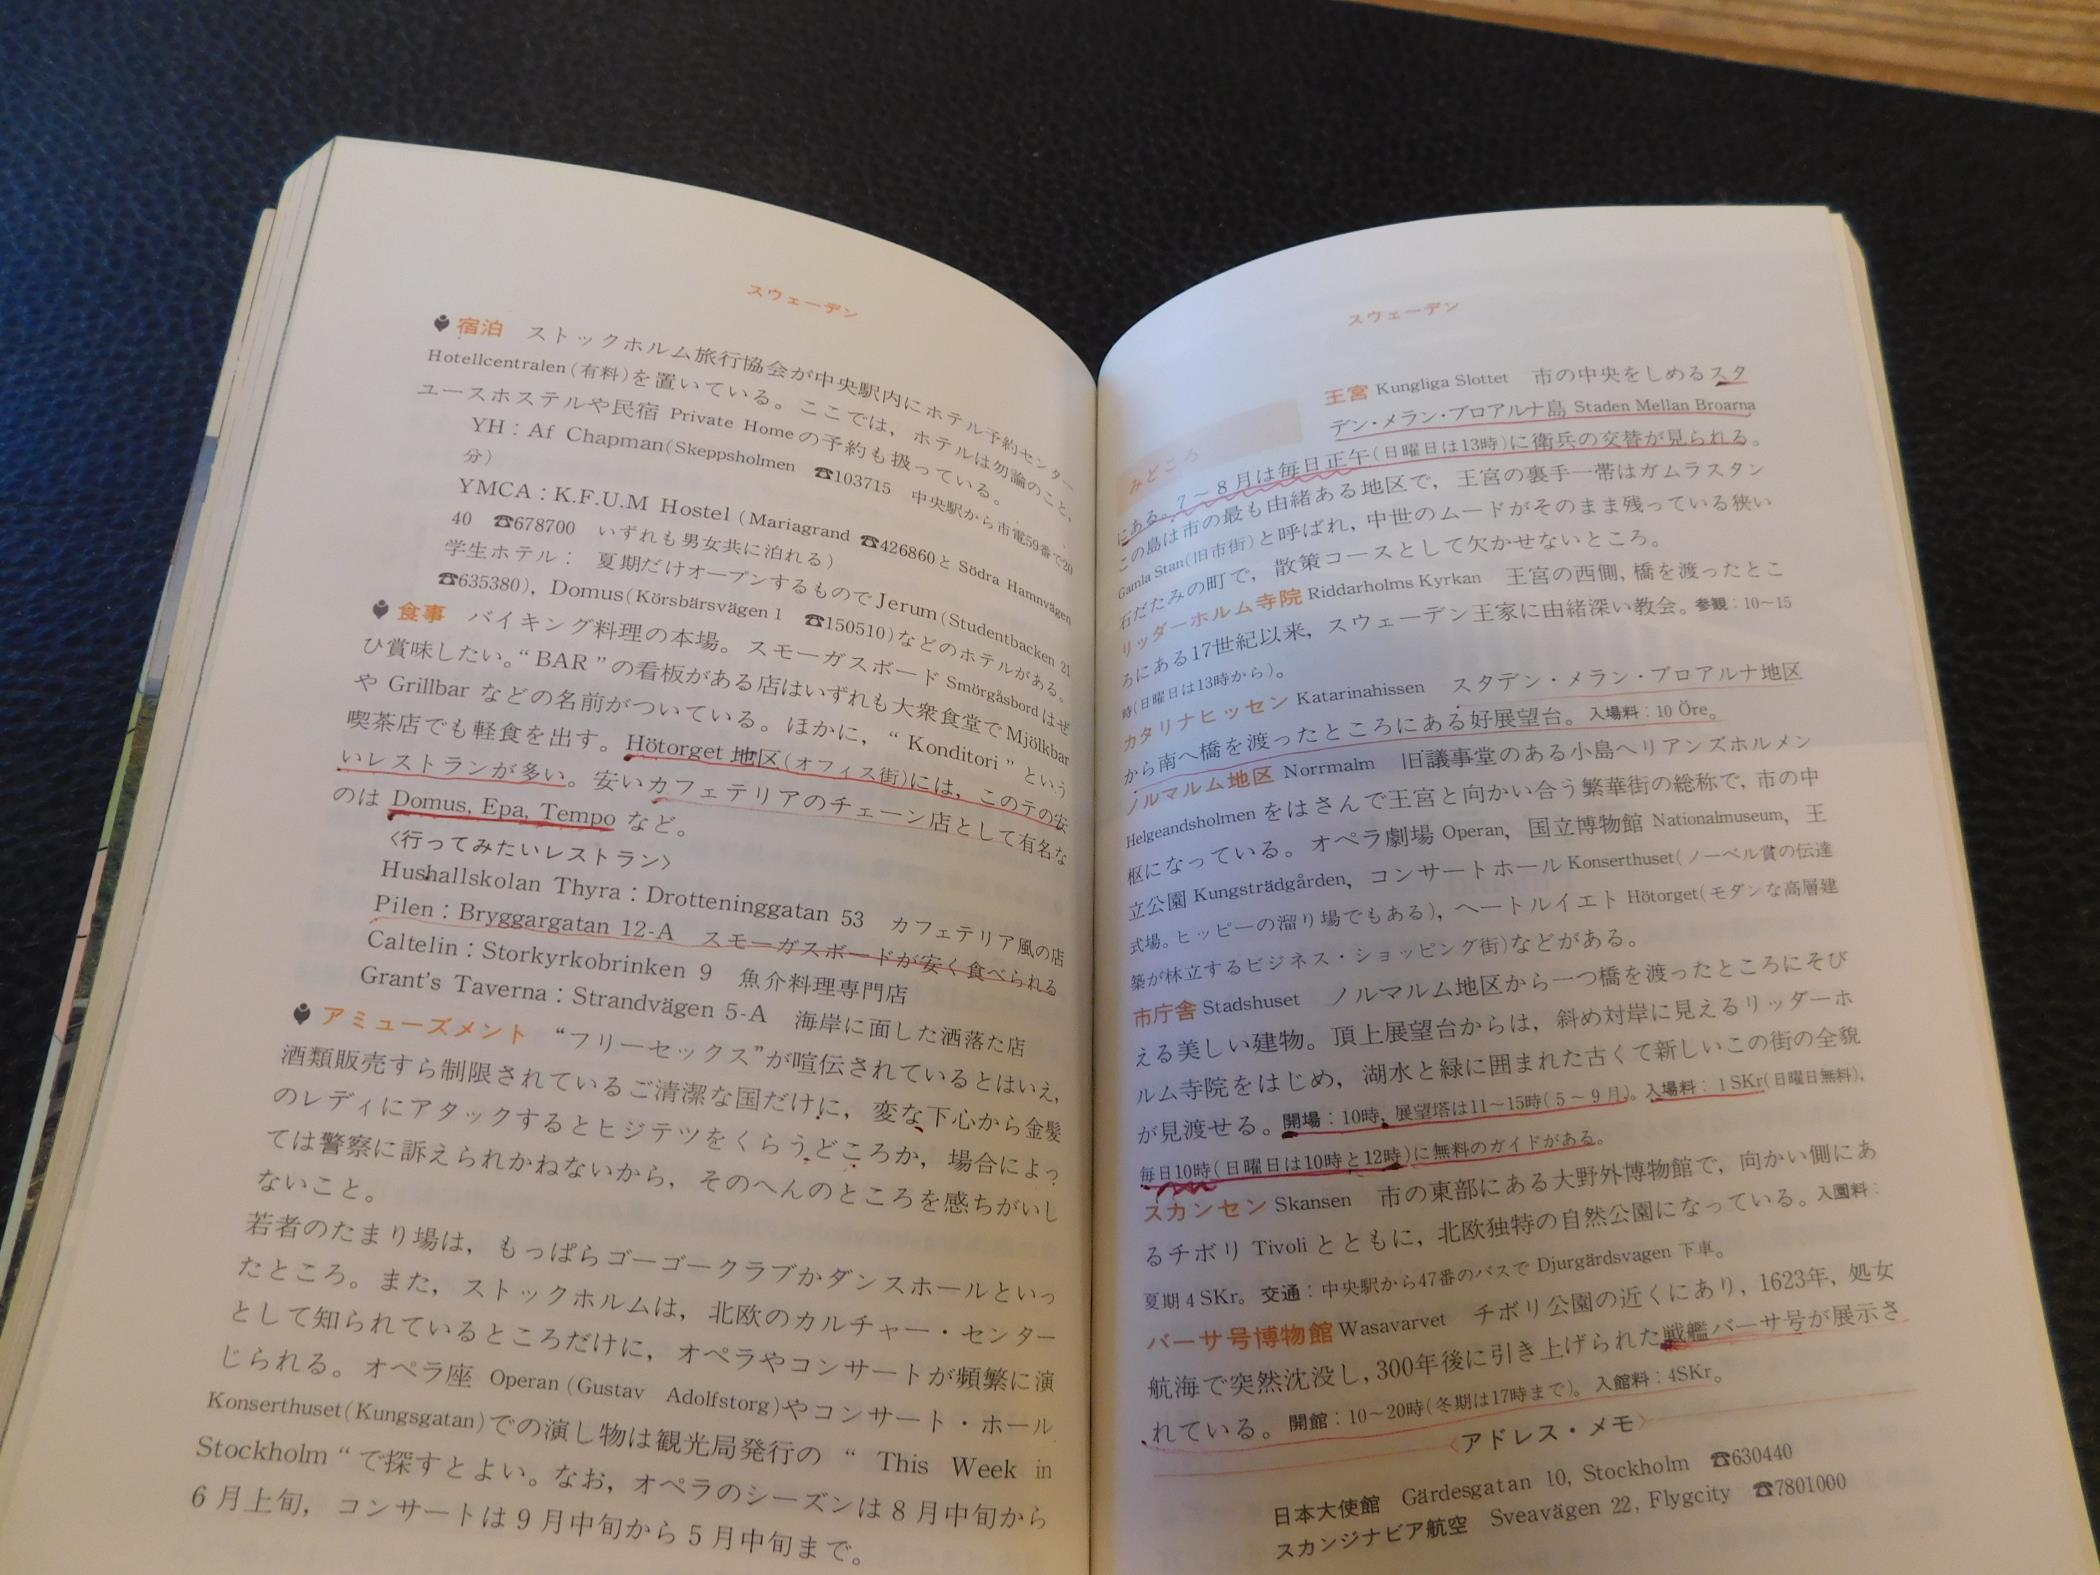 スウェーデン
宿泊 ストックホルム旅行協会が中央駅内にホテル予約センター
Hotellcentralen(有料)を置いている。ここでは，ホテルは勿論のこと，
ユースホステルや民宿 Private Home の予約も扱っている。
YH : Af Chapman(Skeppsholmen ☎103715 中央駅から市電59番で20
分)
YMCA : K.F.U.M Hostel (Mariagrand ☎426860と Södra Hamnvägen
40 ☎678700 いずれも男女共に泊れる)
学生ホテル： 夏期だけオープンするもので Jerum(Studentbacken 21
☎635380)，Domus(Körsbärsvägen 1 ☎150510)などのホテルがある。
食事 バイキング料理の本場。スモーガスボード Smörgåsbord はぜ
ひ賞味したい。“BAR”の看板がある店はいずれも大衆食堂で Mjölkbar
や Grillbar などの名前がついている。ほかに，“ Konditori ” という
喫茶店でも軽食を出す。Hötorget 地区(オフィス街)には，このテの安
いレストランが多い。安いカフェテリアのチェーン店として有名な
のは Domus, Epa, Tempo など。
〈行ってみたいレストラン〉
Hushallskolan Thyra : Drotteninggatan 53 カフェテリア風の店
Pilen : Bryggargatan 12-A スモーガスボードが安く食べられる
Caltelin : Storkyrkobrinken 9 魚介料理専門店
Grant's Taverna : Strandvägen 5-A 海岸に面した洒落た店
アミューズメント “フリーセックス”が喧伝されているとはいえ，
酒類販売すら制限されているご清潔な国だけに，変な下心から金髪
のレディにアタックするとヒジテツをくらうどころか，場合によっ
ては警察に訴えられかねないから，そのへんのところを感ちがいし
ないこと。
若者のたまり場は，もっぱらゴーゴークラブかダンスホールといっ
たところ。また，ストックホルムは，北欧のカルチャー・センター
として知られているところだけに，オペラやコンサートが頻繁に演
じられる。オペラ座 Operan (Gustav Adolfstorg)やコンサート・ホール
Konserthuset(Kungsgatan)での演し物は観光局発行の “ This Week in
Stockholm “ で探すとよい。なお，オペラのシーズンは 8 月中旬から
6 月上旬，コンサートは 9 月中旬から 5 月中旬まで。
スウェーデン
みどころ
王宮 Kungliga Slottet 市の中央をしめるスタ
デン・メラン・ブロアルナ島 Staden Mellan Broarna
にある。7～8月は毎日正午(日曜日は13時)に衛兵の交替が見られる。
この島は市の最も由緒ある地区で，王宮の裏手一帯はガムラスタン
Gamla Stan(旧市街)と呼ばれ，中世のムードがそのまま残っている狭い
石だたみの町で，散策コースとして欠かせないところ。
リッダーホルム寺院 Riddarholms Kyrkan 王宮の西側，橋を渡ったとこ
ろにある17世紀以来，スウェーデン王家に由緒深い教会。参観：10～15
時(日曜日は13時から)。
カタリナヒッセン Katarinahissen スタデン・メラン・ブロアルナ地区
から南へ橋を渡ったところにある好展望台。入場料：10 Öre。
ノルマルム地区 Norrmalm 旧議事堂のある小島ヘリアンズホルメン
Helgeandsholmen をはさんで王宮と向かい合う繁華街の総称で，市の中
枢になっている。オペラ劇場 Operan，国立博物館 Nationalmuseum，王
立公園 Kungsträdgården，コンサートホール Konserthuset(ノーベル賞の伝達
式場。ヒッピーの溜り場でもある)，ヘートルイエト Hötorget(モダンな高層建
築が林立するビジネス・ショッピング街)などがある。
市庁舎 Stadshuset ノルマルム地区から一つ橋を渡ったところにそび
える美しい建物。頂上展望台からは，斜め対岸に見えるリッダーホ
ルム寺院をはじめ，湖水と緑に囲まれた古くて新しいこの街の全貌
が見渡せる。開場：10時，展望塔は11～15時(5～9月)。入場料：1SKr(日曜日無料)，
毎日10時(日曜日は10時と12時)に無料のガイドがある。
スカンセン Skansen 市の東部にある大野外博物館で，向かい側にあ
るチボリ Tivoli とともに，北欧独特の自然公園になっている。入園料：
夏期 4 SKr。交通：中央駅から47番のバスで Djurgärdsvagen 下車。
バーサ号博物館 Wasavarvet チボリ公園の近くにあり，1623年，処女
航海で突然沈没し，300年後に引き上げられた戦艦バーサ号が展示さ
れている。開館：10～20時(冬期は17時まで)。入館料：4SKr。
〈アドレス・メモ〉
日本大使館 Gärdesgatan 10, Stockholm ☎630440
スカンジナビア航空 Sveavägen 22, Flygcity ☎7801000